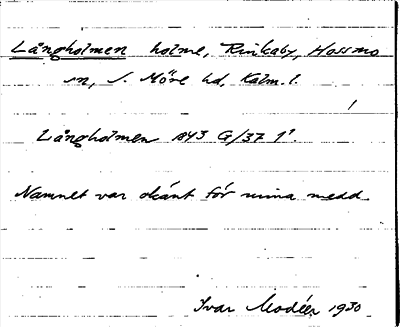 Långholmen holme, Rinkaby, Hossmo
sn, S. Möre hd, Kalm. l.
!
Långholmen 1843 G/37 1¹.
Namnet var okänt för mina medd.
Ivar Modéer 1930